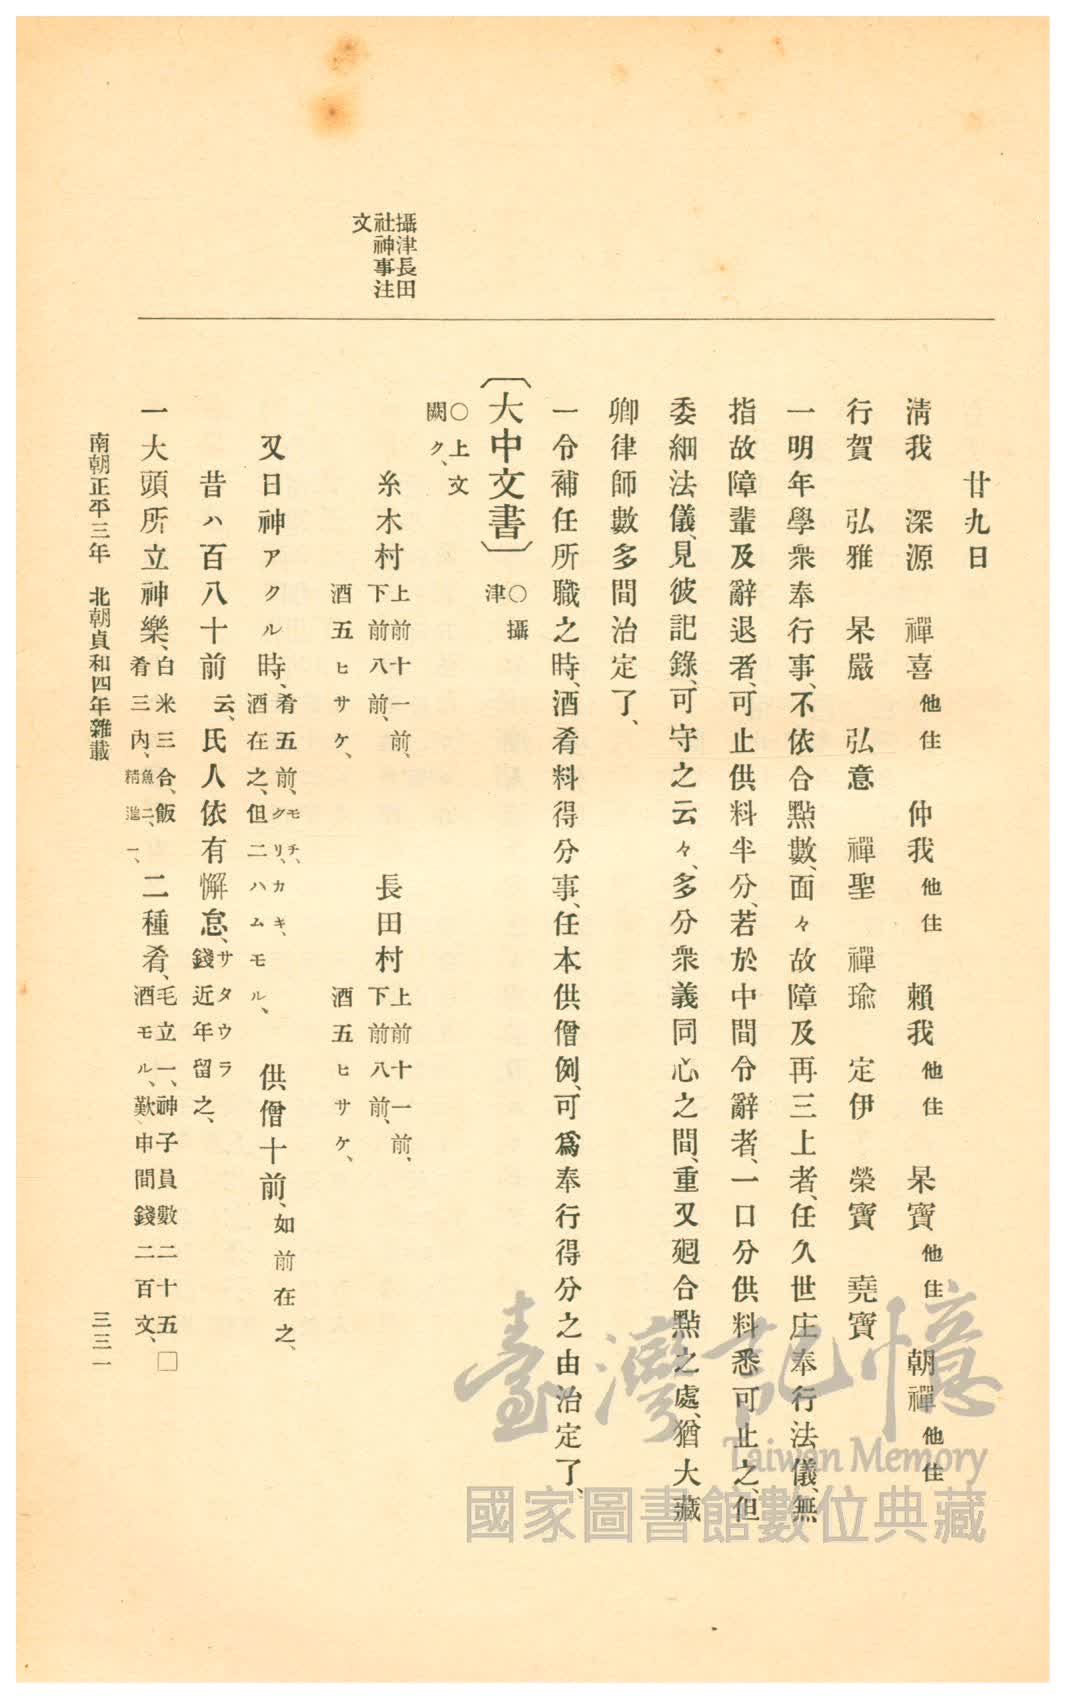 攝津長田
社神事注
文
廿九日
淸我　深源　禪喜他住　仲我他住　賴我他住　杲寶他住　朝禪他住
行賀　弘雅　杲嚴　弘意　禪聖　禪瑜　定伊　榮寶　堯寶
一明年學衆奉行事、不依合點數、面々故障及再三上者、任久世庄奉行法儀、無
指故障輩及辭退者、可止供料半分、若於中間令辭者、一口分供料悉可止之、但
委細法儀、見彼記錄、可守之云々、多分衆義同心之間、重又廻合點之處、猶大藏
卿律師數多間治定了、
一令補任所職之時、酒肴料得分事、任本供僧例、可爲奉行得分之由治定了、
〔大中文書〕○攝津
○上文闕ク、
糸木村　上前十一前、下前八前、酒五ヒサケ、　長田村　上前十一前、下前八前、酒五ヒサケ、
又日神アクル時、肴五前、モチ、カキ、クリ、酒在之、但二ハムモル、　供僧十前、如前在之、
昔ハ百八十前云、氏人依有懈怠、サタウラ錢近年留之、
一大頭所立神樂、白米三合、飯肴三内、魚二、精進一、二種肴、毛立一、酒モル、神子員數二十五□歎申間錢二百文、
南朝正平三年　北朝貞和四年雜載
三三一
臺灣記憶
Taiwan Memory
國家圖書館數位典藏